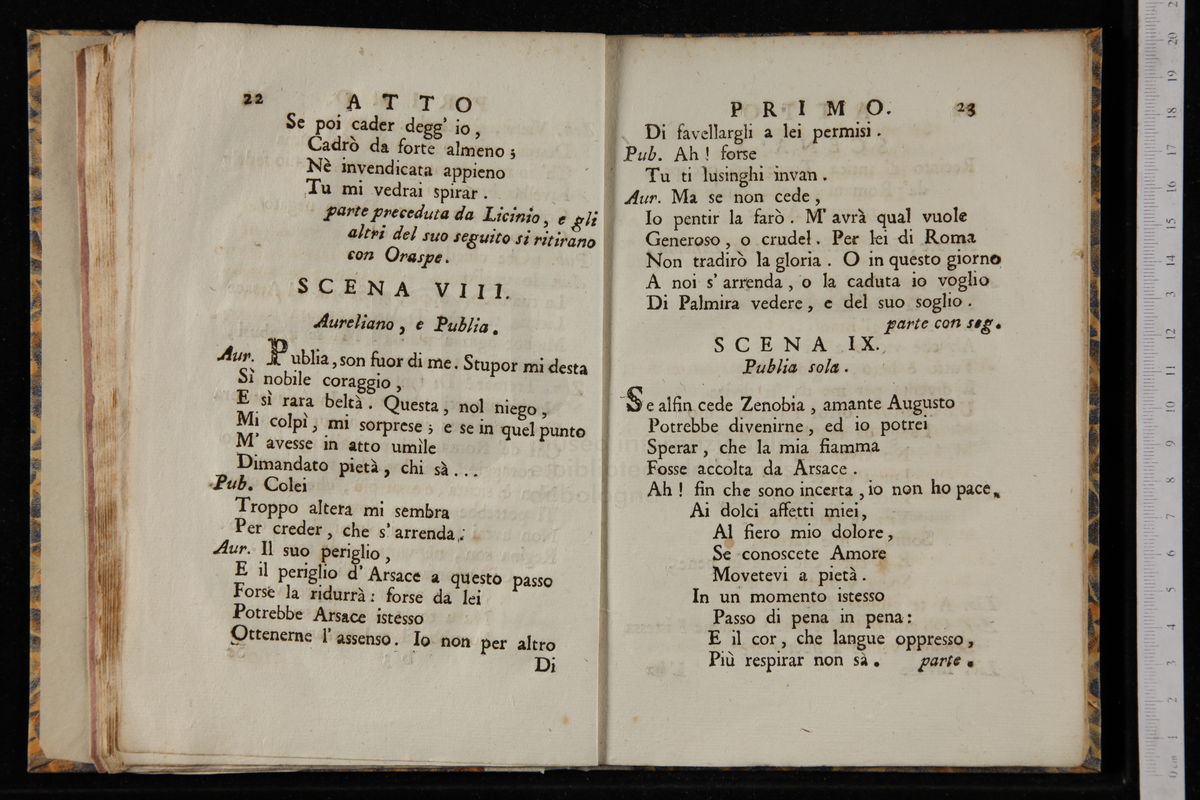 22 ATTO
Se poi cader degg' io,
Cadrò da forte almeno;
Nè invendicata appieno
Tu mi vedrai spirar.
parte preceduta da Licinio, e gli
altri del suo seguito si ritirano
con Oraspe.
SCENA VIII.
Aureliano, e Publia.
Aur. Publia, son fuor di me. Stupor mi desta
Sì nobile coraggio,
E sì rara beltà. Questa, nol niego,
Mi colpì, mi sorprese; e se in quel punto
M' avesse in atto umìle
Dimandato pietà, chi sà...
Pub. Colei
Troppo altera mi sembra
Per creder, che s' arrenda.
Aur. Il suo periglio,
E il periglio d' Arsace a questo passo
Forse la ridurrà: forse da lei
Potrebbe Arsace istesso
Ottenerne l' assenso. Io non per altro
Di
PRIMO. 23
Di favellargli a lei permisi.
Pub. Ah! forse
Tu ti lusinghi invan.
Aur. Ma se non cede,
Io pentir la farò. M' avrà qual vuole
Generoso, o crudel. Per lei di Roma
Non tradirò la gloria. O in questo giorno
A noi s' arrenda, o la caduta io voglio
Di Palmira vedere, e del suo soglio.
parte con seg.
SCENA IX.
Publia sola.
Se alfin cede Zenobia, amante Augusto
Potrebbe divenirne, ed io potrei
Sperar, che la mia fiamma
Fosse accolta da Arsace.
Ah! fin che sono incerta, io non ho pace.
Ai dolci affetti miei,
Al fiero mio dolore,
Se conoscete Amore
Movetevi a pietà.
In un momento istesso
Passo di pena in pena:
E il cor, che langue oppresso,
Più respirar non sà. parte.